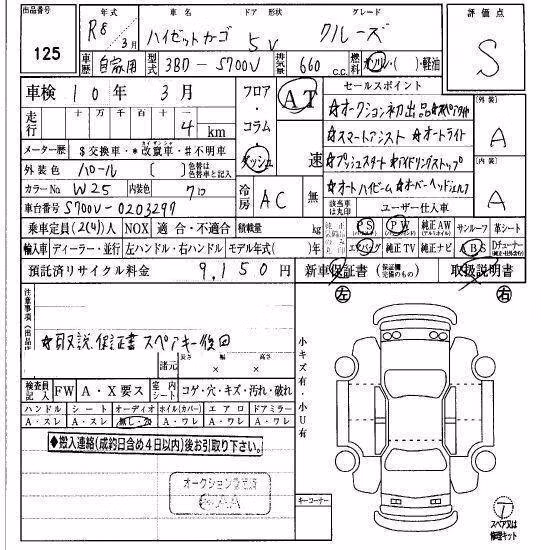 出品番号 年式 車名 ドア 形状 グレード 評価点
125 R8年3月 ハイゼットカーゴ 5V クルーズ S
車歴 自家用 型式 3BD-S700V 排気量 660 c.c. 燃料 ガソリン・( )・軽油
車検 10年 3月 フロア・コラム・ダッシュ AT セールスポイント
走行 十万千百十一 4 km 速 ☆オークション初出品 ☆スペアタイヤ 外装 A
メーター歴 $交換車・*改竄車・#不明車 カイザンシャ ☆スマートアシスト ☆オートライト
外装色 パール ( ) 色替は色替車と記入 ☆プッシュスタート ☆アイドリングストップ 内装 A
カラーNo W25 内装色 クロ 冷房 AC 無 ☆オートハイビーム ☆オーバーヘッドシェルフ
車台番号 S700V-0203297 該当車は丸印 ユーザー仕入車
乗車定員 (2(4)人) NOX 適合・不適合 積載量 kg PS PW 純正AW サンルーフ 革シート
輸入車 ディーラー・並行 左ハンドル・右ハンドル モデル年式( )年 エアバッグ 純正TV 純正ナビ ABS Dチューナー
預託済リサイクル料金 9,150円 新車保証書 (保証欄完備のもの) 取扱説明書
注意事項 (出品店) 左 右
☆取説、保証書 スペアキー後日
諸元 長さ × 幅 × 高さ 小キズ有・小U有
検査員記入 FW A・X要ス 室内シート コゲ・穴・キズ・汚れ・破れ
ハンドル シート オーディオ ホイル(カバー) エアロ ドアミラー
A・スレ A・スレ 無し・スレ A・ワレ A・ワレ A・ワレ
◆搬入連絡(成約日含め4日以内)後お引取り下さい。
オークション受付済
CAA キーコーナー
スペア又は修理キット